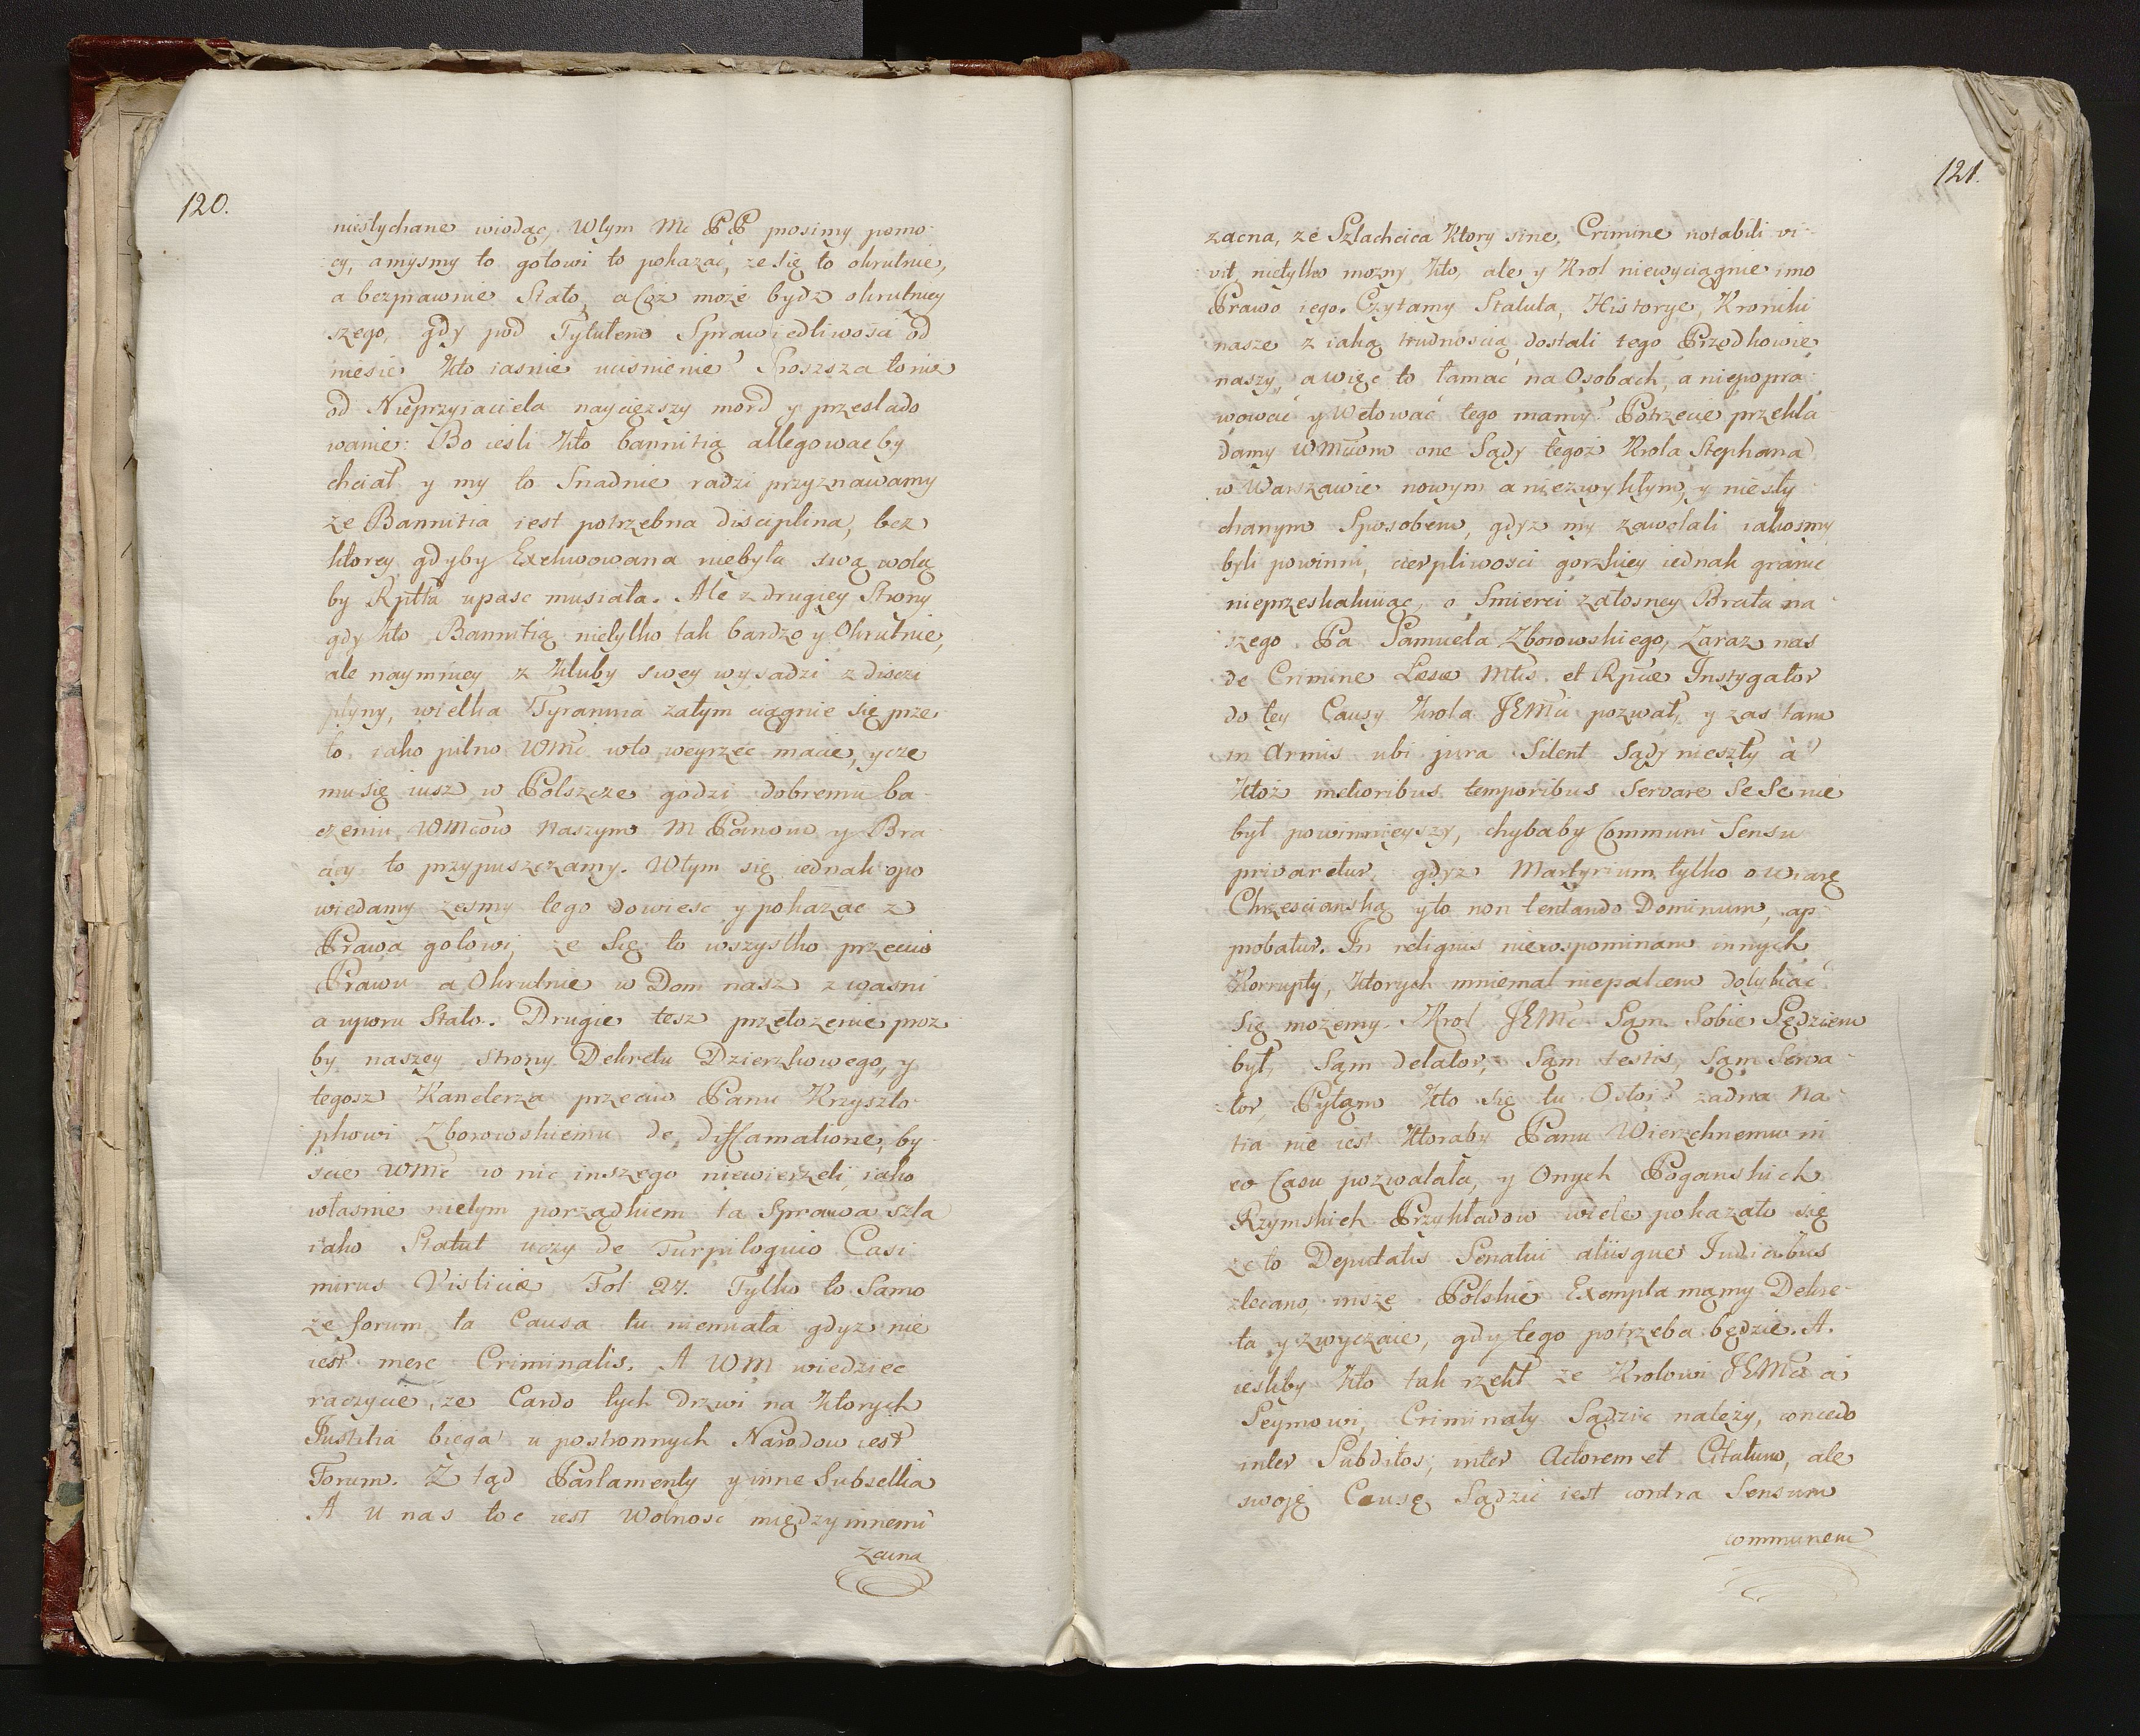 120.
niesłychane wiodąc, Wtym Mc PP prosimy pomo-
cy, amysmy to gotowi to pokazac, ze się to okrutnie,
a bezprawnie Stało, a Coż może bydz okrutniey
szego, gdy pod Tytułem Sprawiedliwosci od
niesie kto iasnie ucisnienie? Proszsza to nie
od Nieprzyiaciela naycięzszy mord y przeslado
wanie: Bo iesli kto bannitią allegowacby
chciał y my to Snadnie radzi przyznawamy
że Bannitia iest potrzebna disciplina, bez
ktorey gdyby Exekwowana niebyła swą wolą
by Rptta upasc musiała. Ale z drugiey Strony
gdy kto Bannitią nietylko tak bardzo y Okrutnie,
ale naymniey z kluby swey wysadzi z disczi
plyny, wielka Tyrannia zatym ciągnie się prze-
to iako pilno WMc wto weyrzec macie, y cze
mu się iusz w Polszcze godzi dobremu ba-
czeniu WMcow Naszym M Panom y Bra
acy to przypuszczamy. Wtym się iednak opo
wiedamy zesmy tego dowiesc y pokazac z
Prawa gotowi, ze Się to wszystko przeciw
Prawu a Okrutnie w Dom nasz z wasni
a uporu Stało. Drugie tesz przełozenie proz
by naszey strony Dekretu Dzierzkowego, y
tegosz Kanclerza przeciw Panu Krzyszto-
phowi Zborowskiemu de diffamatione, by-
scie WMc w nic inszego niewierzeli, iako
własnie nietym porządkiem ta Sprawa szła
iako Statut uczy de Turpiloquio Casi
mirus Visliciæ Fol 24. Tylko to Samo
że forum ta Causa tu niemiała gdyz nie
iest mere Criminalis. A WM wiedziec
raczycie, ze Cardo tych Drzwi na ktorych
Justitia biega u postronnych Narodow iest
Forum. Z tąd Parlamenty y inne Subsellia
A u nas toc iest Wolnosc między innemi
zacna
121.
zacna, ze Szlachcica ktory sine Crimine notabili vi-
vit, nietylko mozny kto, ale y Krol niewyciągnie imo
Prawo iego. Czytamy Statuta, Historye, Kroniki
nasze z iaką trudnoscią dostali tego Przodkowie
naszy, a więc to łamać na Osobach, a niepopra
wować y Wetować tego mamy? Potrzecie przekła
damy WMciom one Sądy tegoż Krola Stephana
w Warszawie nowym a niezwykłym, y niesły
chanym Sposobem, gdyz my zawołali iakosmy
byli powinni, cierpliwosci gorzkiey iednak granic
nieprzeskakuiąc, o Smierci załosney Brata na-
szego Pa Samuela Zborowskiego, Zaraz nas
de Crimine Læsæ Mtis et Rpcæ Instygator
do tey Causy Krola JEMci pozwał, y zas tam
in Armis ubi jura Silent Sądy nieszły à
ktoż melioribus temporibus Servare Se Se nie
był powinnieyszy, chybaby Communi Sensu
privaretur, gdyz Martyrium tylko o wiarę
Chrzescianską y to non tentando Dominum, ap-
probatur. In reliquis niewspominam innych
Korrupty, ktorych mniemał niepalcem dotykać
Się możemy. Krol JEMc Sam Sobie Sędziem
był, Sąm delator, Sąm testis, Sąm Serva-
tor, Pytąm kto się tu Ostoi? zadna Na-
tia nie iest ktoraby Panu Wierzchnemu in
eo Casu pozwalała, y Onych Poganskich
Rzymskich Przykładow wiele pokazało się
że to Deputatis Senatui aliisque Judicibus
zlecano, insze Polskie Exempla mąmy Dekre-
ta y zwyczaie, gdy tego potrzeba będzie. A.
iesliby kto tak rzekł ze Krolowi JEMci a
Seymowi, Criminały Sądzic należy, concedo
inter Subditos, inter Actorem et Citatum, ale
swoję Causę Sądzić iest contra Sensum
communem